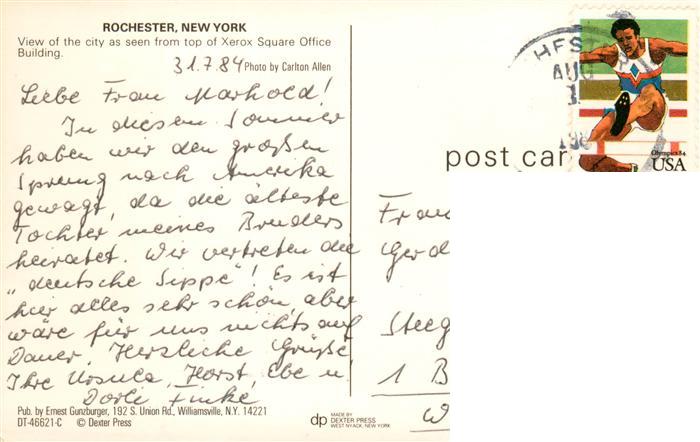 ROCHESTER, NEW YORK
View of the city as seen from top of Xerox Square Office
Building.
31.7.84 Photo by Carlton Allen
Liebe Frau Marhold!
In diesem Sommer
haben wir den großen
Sprung nach Amerika
gewagt, da die älteste
Tochter meines Bruders
heiratet. Wir vertreten die
„deutsche Sippe"! Es ist
hier alles sehr schön aber
wäre für uns nichts auf
Dauer. Herzliche Grüße
Ihre Ursula, Horst, Ebe u.
Dorle Finke
Pub. by Ernest Gunzburger, 192 S. Union Rd., Williamsville, N.Y. 14221
DT-46621-C © Dexter Press
dp MADE BY
DEXTER PRESS
WEST NYACK, NEW YORK
HFS
AUG
198
Olympics 84
USA
post car
Frau
Gerd
Steeg
1 B